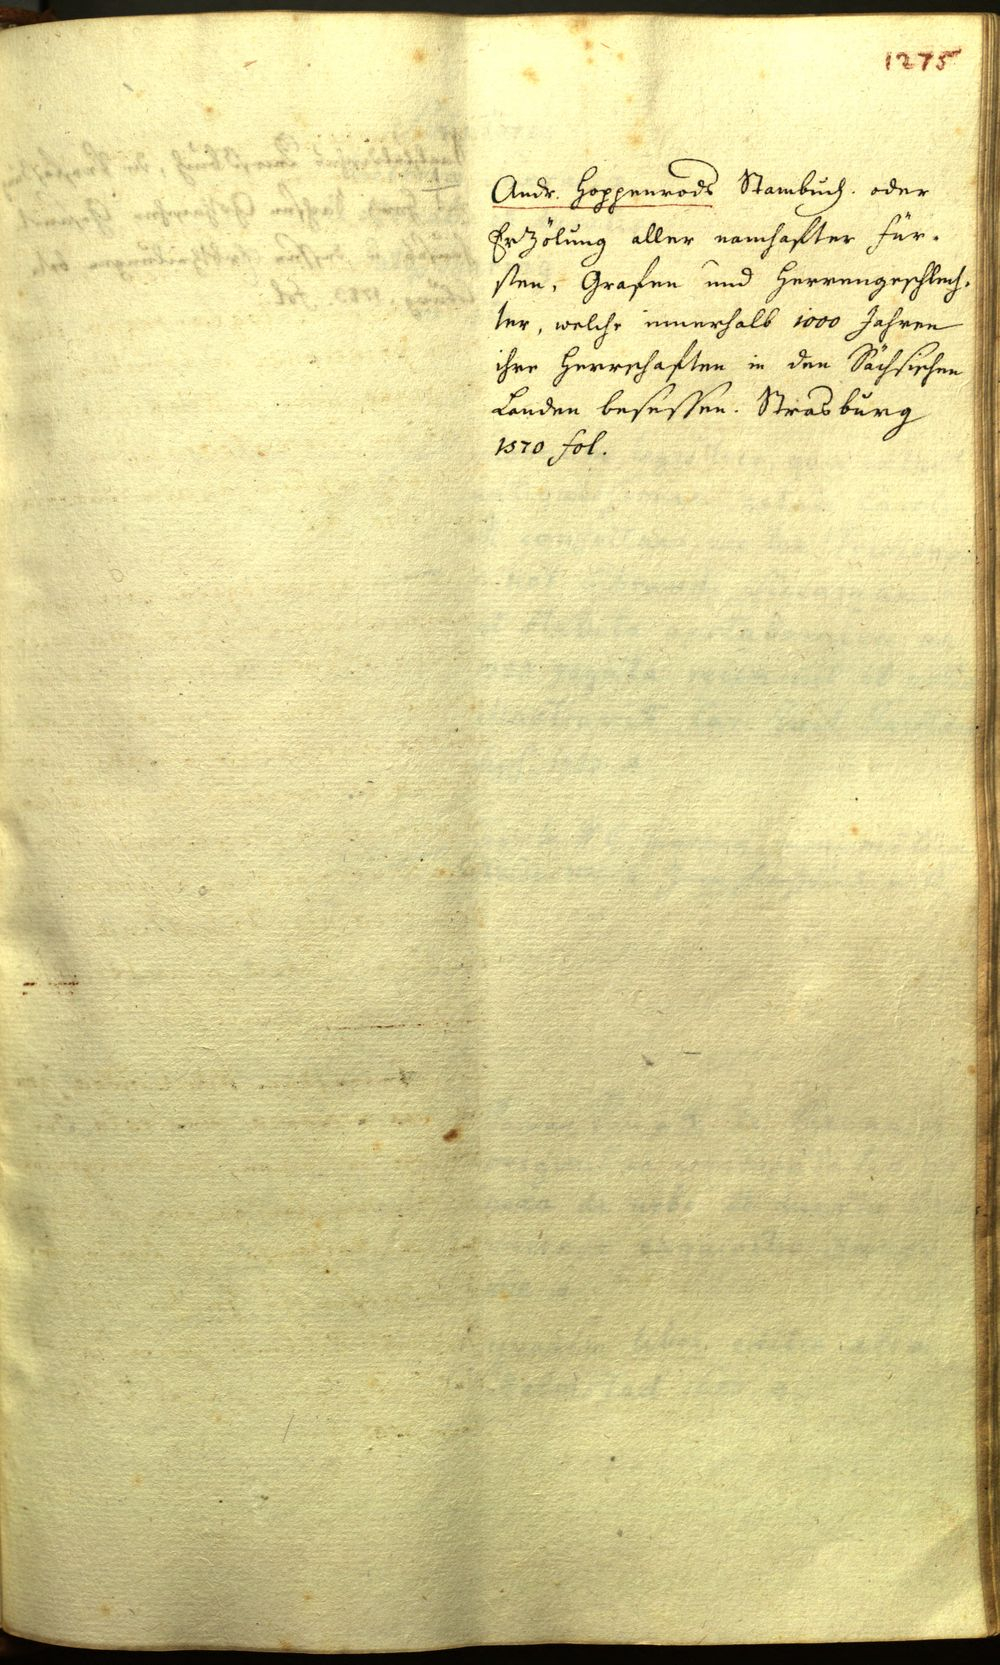 1275
Andr. Hoppenrods Stambuch. oder
Erzölung aller namhafter Für-
sten, Grafen und Herrengeschlech-
ter, welche innerhalb 1000 Jahren
ihre Herrschaften in den Sächsischen
Landen besessen. Strasburg
1570 fol.